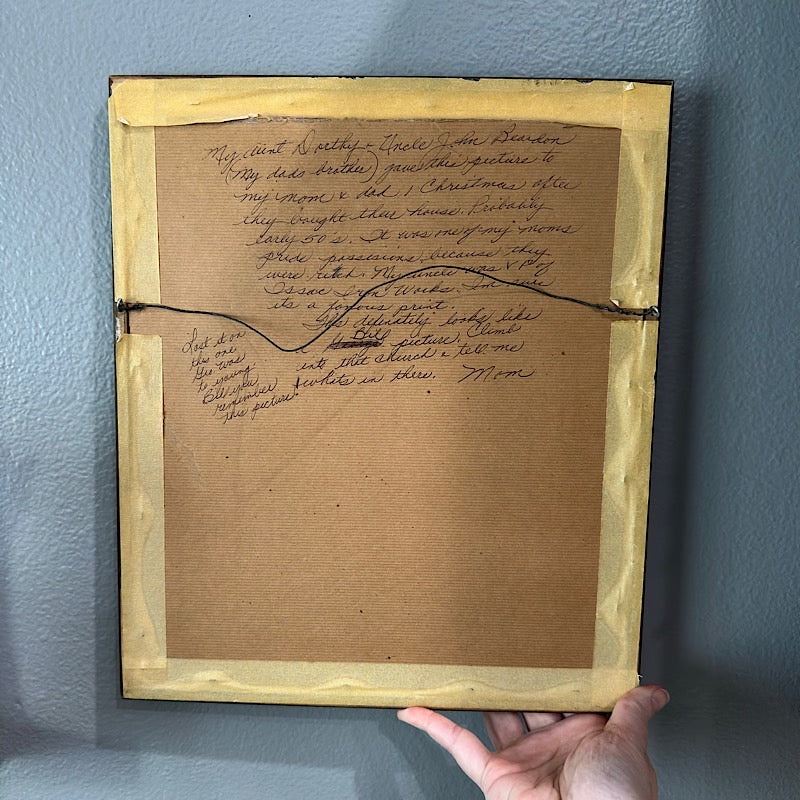 My Aunt Dorthy + Uncle John Beardon
(My dads brother) gave this picture to
my mom & dad 1 Christmas after
they bought their house. Probably
early 50's. It was one of my moms
pride possisions because they
were rich. My uncle was V.P. of
Issac Iron Works. I'm sure
its a famous print.
It's definately looks like
a Bill picture. Climb
into that church & tell me
whats in there. Mom
Lost it on
this one
Geo was
to young
Bill you
remember
this picture!